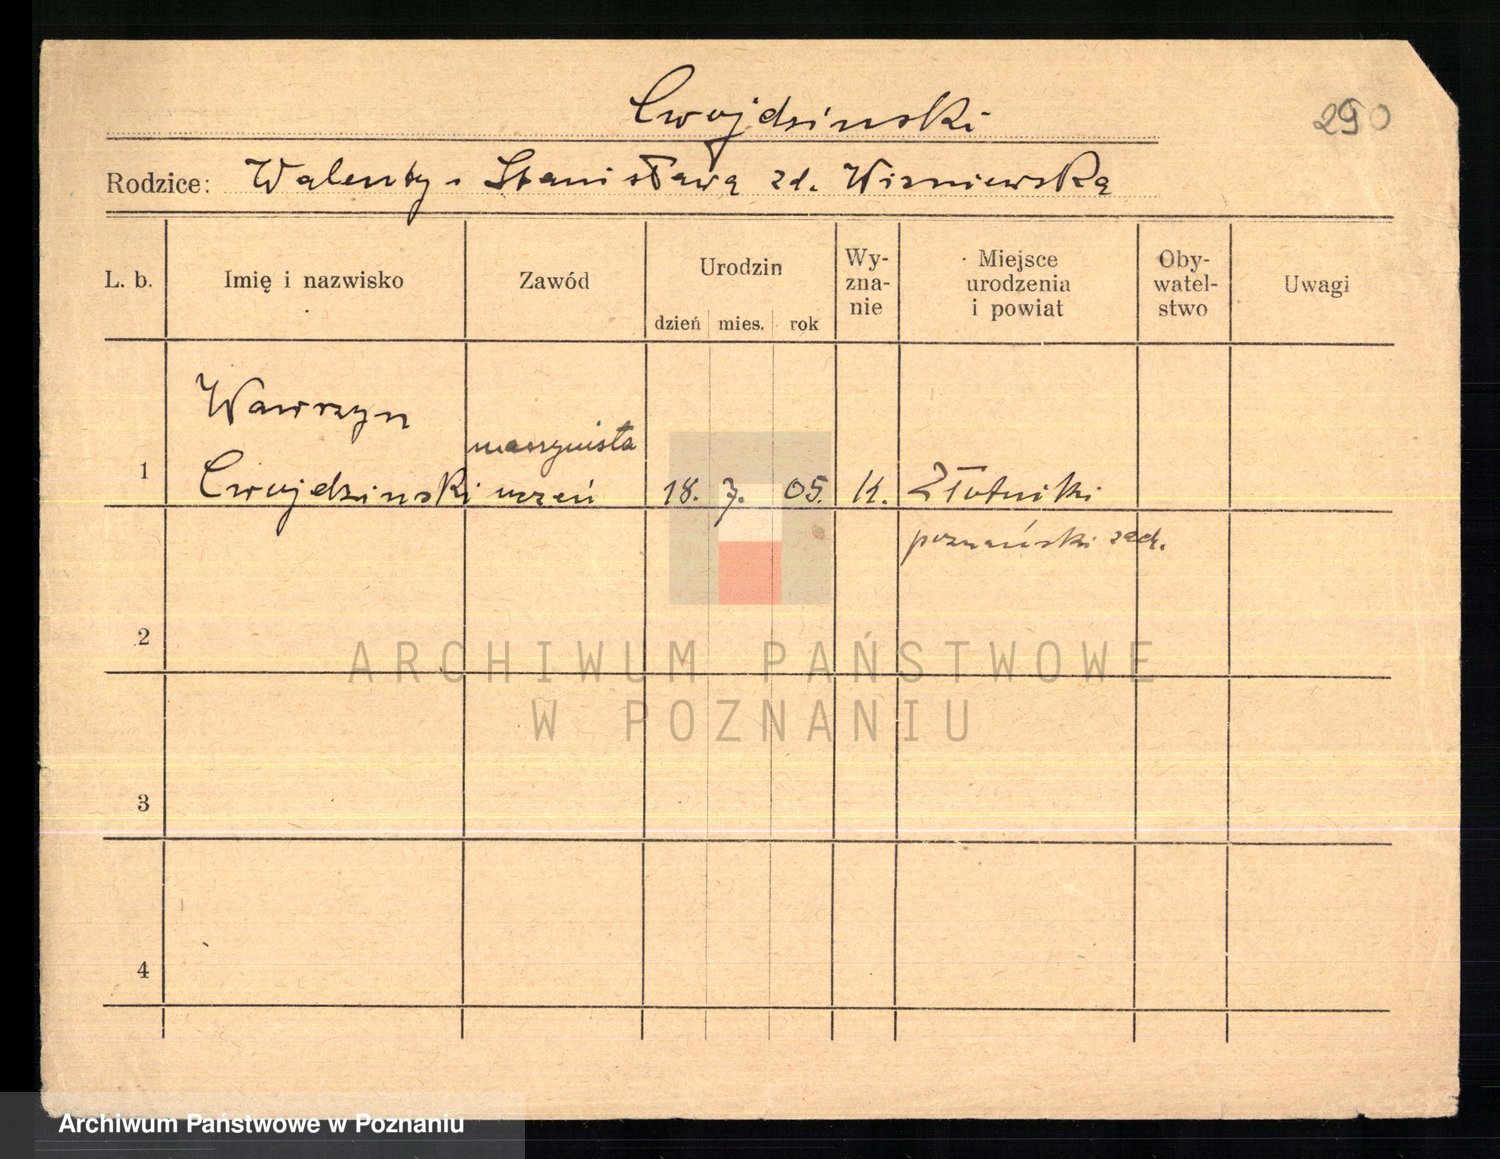 Cwojdzinski
290
Rodzice: Walenty i Stanisława zd. Wizniewska
L. b.
Imię i nazwisko
Zawód
Urodzin
dzień mies. rok
Wy-
zna-
nie
Miejsce
urodzenia
i powiat
Oby-
watel-
stwo
Uwagi
1
Wawrzyn
Cwojdzinski
maszynista
uczeń
18. 7. 05.
K.
Złotniki
poznański zach.
2
3
4
ARCHIWUM PAŃSTWOWE
W POZNANIU
Archiwum Państwowe w Poznaniu